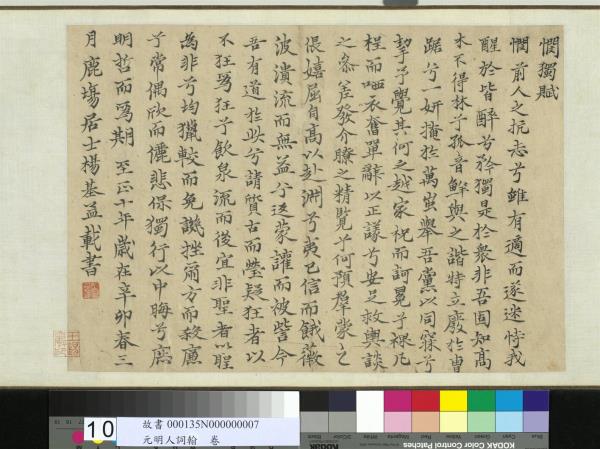 憫獨賦
憫前人之抗志兮雖有邁而遂迷恃我
醒於皆醉兮矜獨是於衆非吾固知高
木不得林兮孤音鮮與之諧特立廢於曹
踞兮一妍擯於萬蚩舉吾黨以同寐兮
挐予覺其何之越家祝而訶冕兮裸
程而哂衣奮單辭以正議兮安足救輿談
之發介瞭之精覽兮何預羣蒙之
倀嬉屈自高以赴淵兮夷已信而餓薇
波潰流而無益兮返蒙讙而被訾今
吾有道於此兮請質古而瑩疑狂者以
不狂爲狂兮飲泉流而後宜非聖者以睲
爲非兮均獵較而免譏挫觚方而殺廉
兮常偶欣而儷悲保獨行以中晦兮庶
明哲而爲期 至正十年歲在辛卯春三
月鹿塲居士楊基孟載書
10
故書 000135N000000007
元明人詞翰 卷
KODAK Color Control Patches